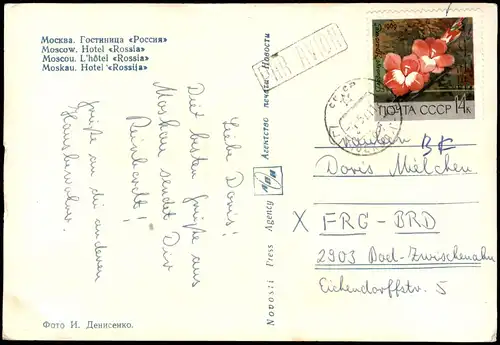 Москва. Гостиница «Россия»
Moscow. Hotel «Rossia»
Moscou. L'hôtel «Rossia»
Moskau. Hotel «Rossija»
Liebe Doris!
Die besten Grüße aus
Moskau sendet Dir
Reinhardt!
Grüße an die anderen
Hausbewohner.
Фото И. Денисенко.
Агентство печати Новости
Novosti Press Agency
PAR AVION
ПОЧТА СССР 14к
Doris
X FRG-BRD
2903 Bad-Zwischenahn
Eichendorffstr. 5